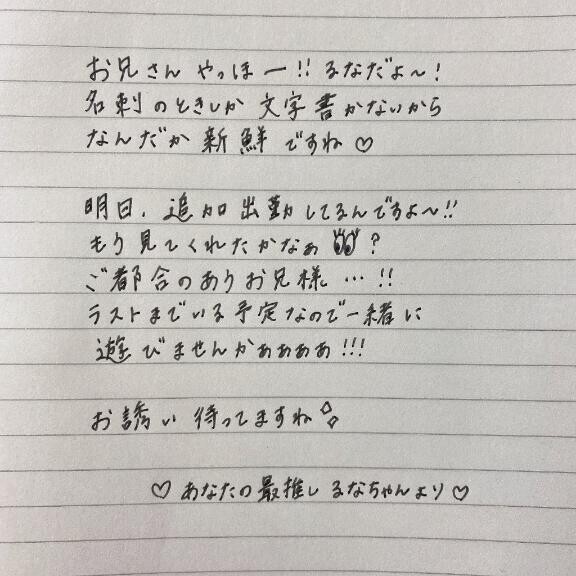 お兄さん やっほー!! るなだよ〜!
名刺のときしか 文字書かないから
なんだか新鮮ですね♡
明日、追加出勤してるんですよ〜!!
もう見てくれたかなぁ👀?
ご都合のありお兄様…!!
ラストまでいる予定なので一緒に
遊びませんかぁぁぁぁ!!!
お誘い待ってますね✧
♡あなたの最推し るなちゃんより♡